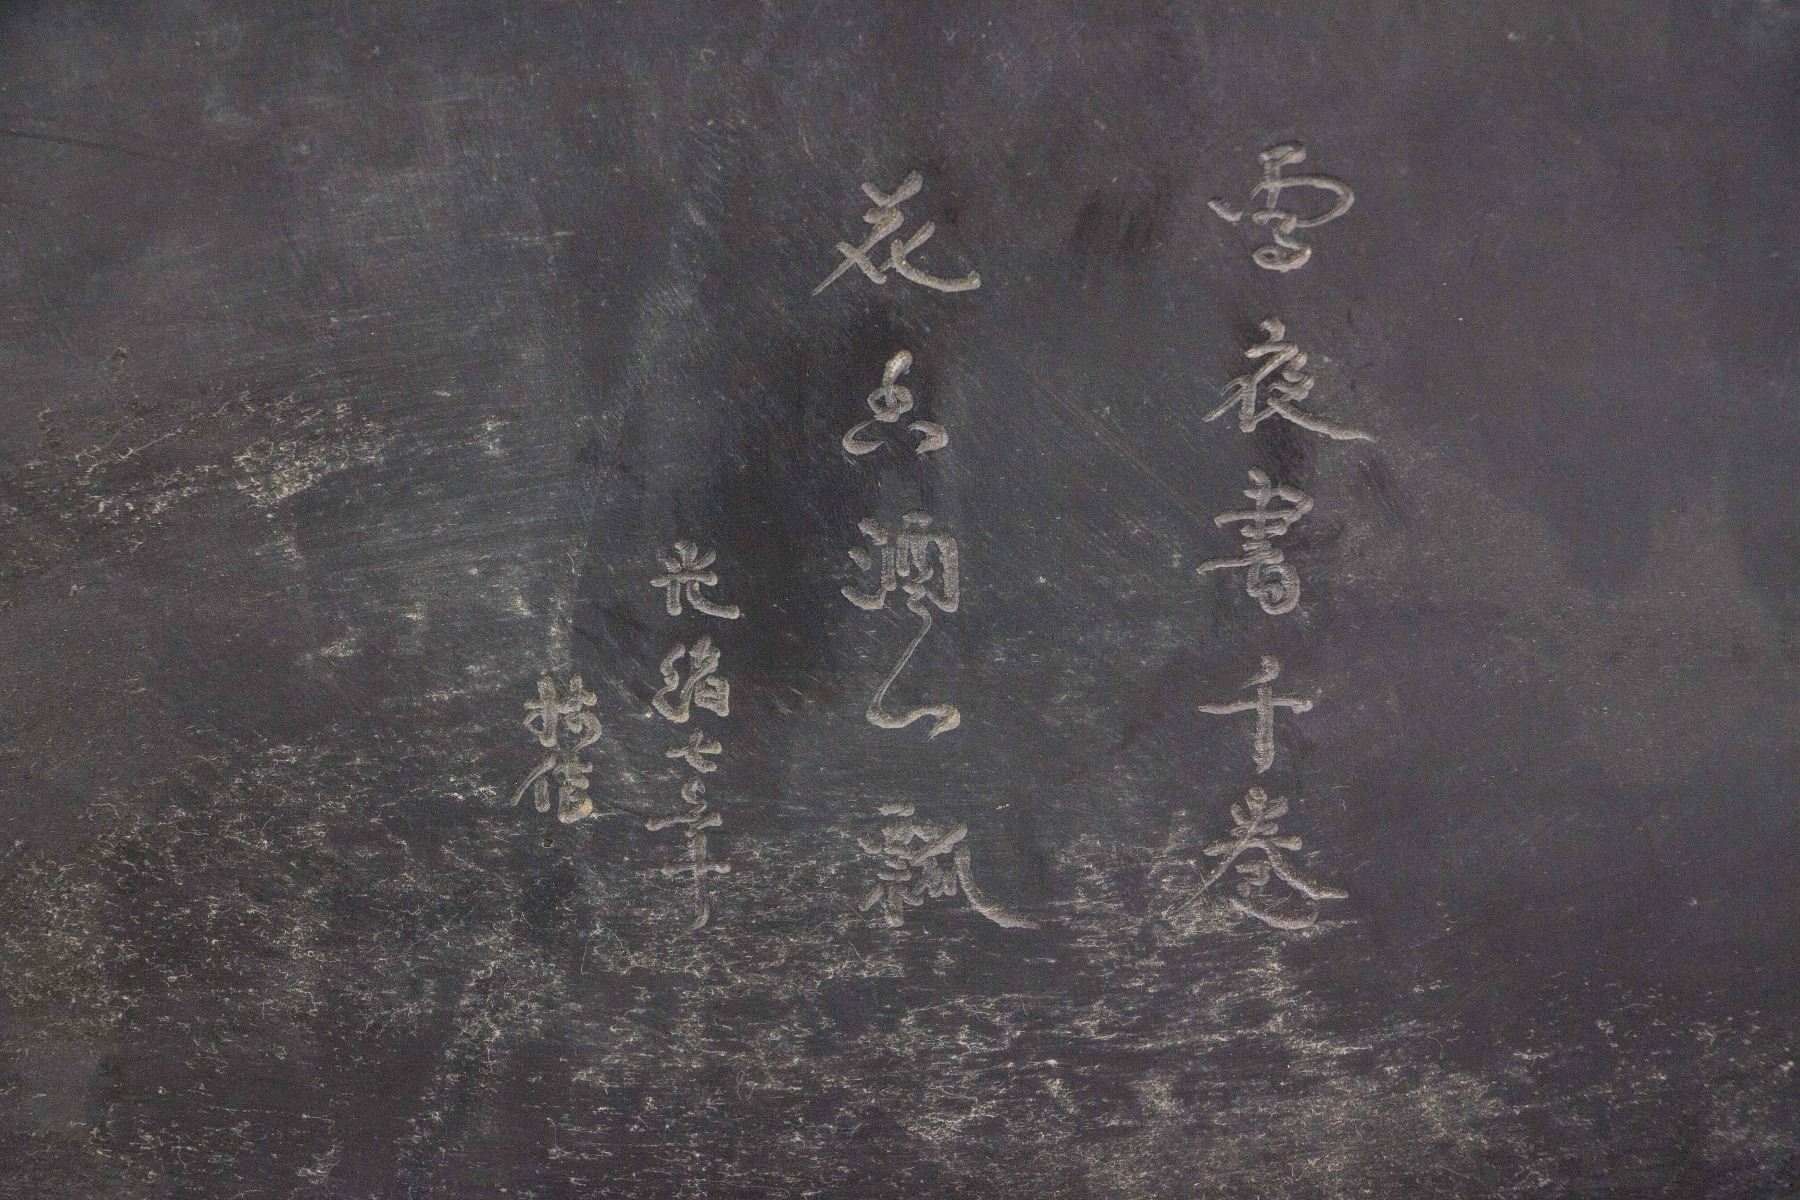 雪夜書千卷
花酒一瓢
光緒七年